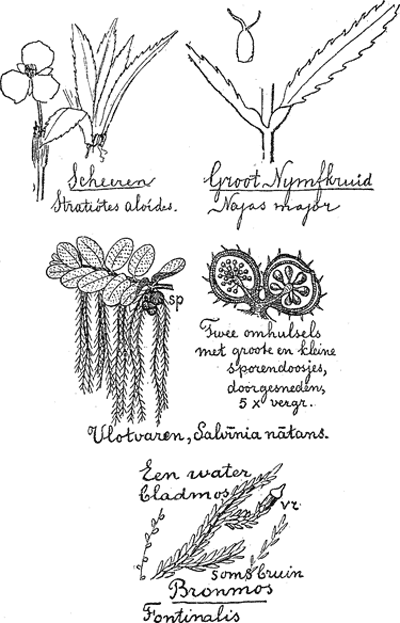 Scheeren
Stratiòtes aloídes.
Groot Nymfkruid
Najas major
sp
Twee omhulsels
met groote en kleine
sporendoosjes,
doorgesneden,
5 x vergr.
Vlotvaren, Salvinia nãtans.
Een water
bladmos
vr.
soms bruin
Bronmos
Fontinalis